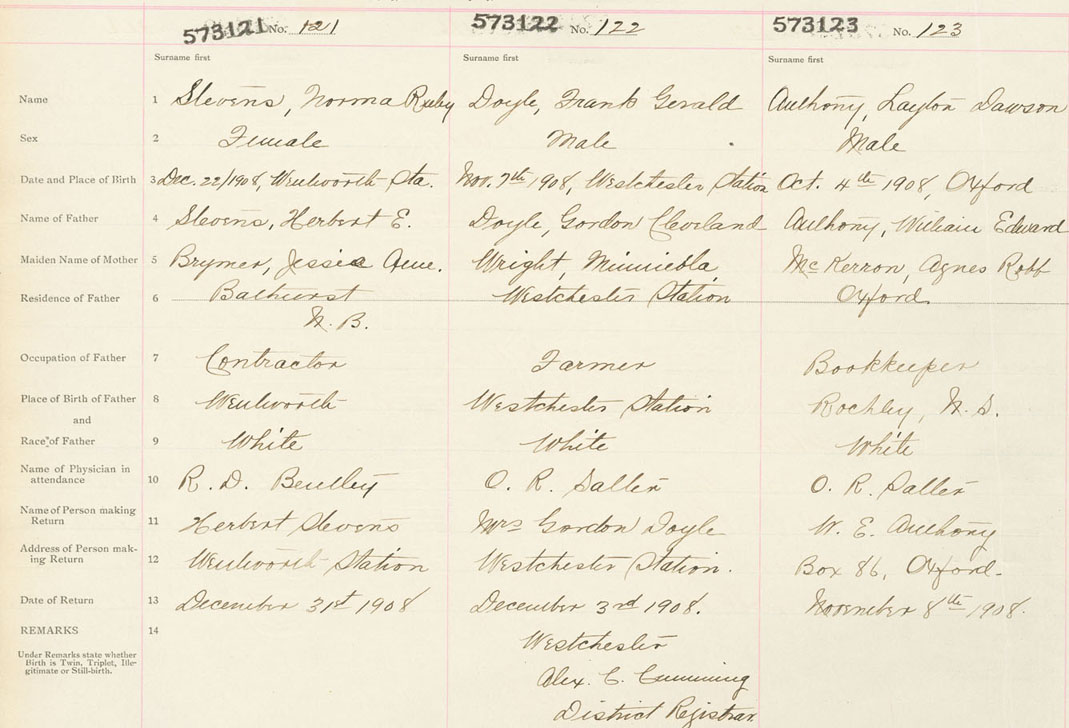 573121 No. 121 573122 No. 122 573123 No. 123
Surname first Surname first Surname first
Name 1 Stevens, Norma Ruby Doyle, Frank Gerald Anthony, Layton Dawson
Sex 2 Female Male Male
Date and Place of Birth 3 Dec. 22/1908, Wentworth Sta. Nov. 7th 1908, Westchester Station Oct. 4th 1908, Oxford
Name of Father 4 Stevens, Herbert E. Doyle, Gordon Cleveland Anthony, William Edward
Maiden Name of Mother 5 Brymer, Jessie Wright, McKerron, Agnes Robb
Residence of Father 6 Bathurst Westchester Station Oxford
N. B.
Occupation of Father 7 Contractor Farmer Bookkeeper
Place of Birth of Father 8 Wentworth Westchester Station N. S.
and
Race of Father 9 White White White
Name of Physician in
attendance 10 R. D. Bentley O. R. Salter O. R. Salter
Name of Person making
Return 11 Herbert Stevens Mrs Gordon Doyle W. E. Anthony
Address of Person mak-
ing Return 12 Wentworth Station Westchester Station. Box 86, Oxford.
Date of Return 13 December 31st 1908 December 3rd 1908. November 8th 1908.
REMARKS 14 Westchester
Under Remarks state whether
Birth is Twin, Triplet, Ille-
gitimate or Still-birth.
Alex. C. Cumming
District Registrar